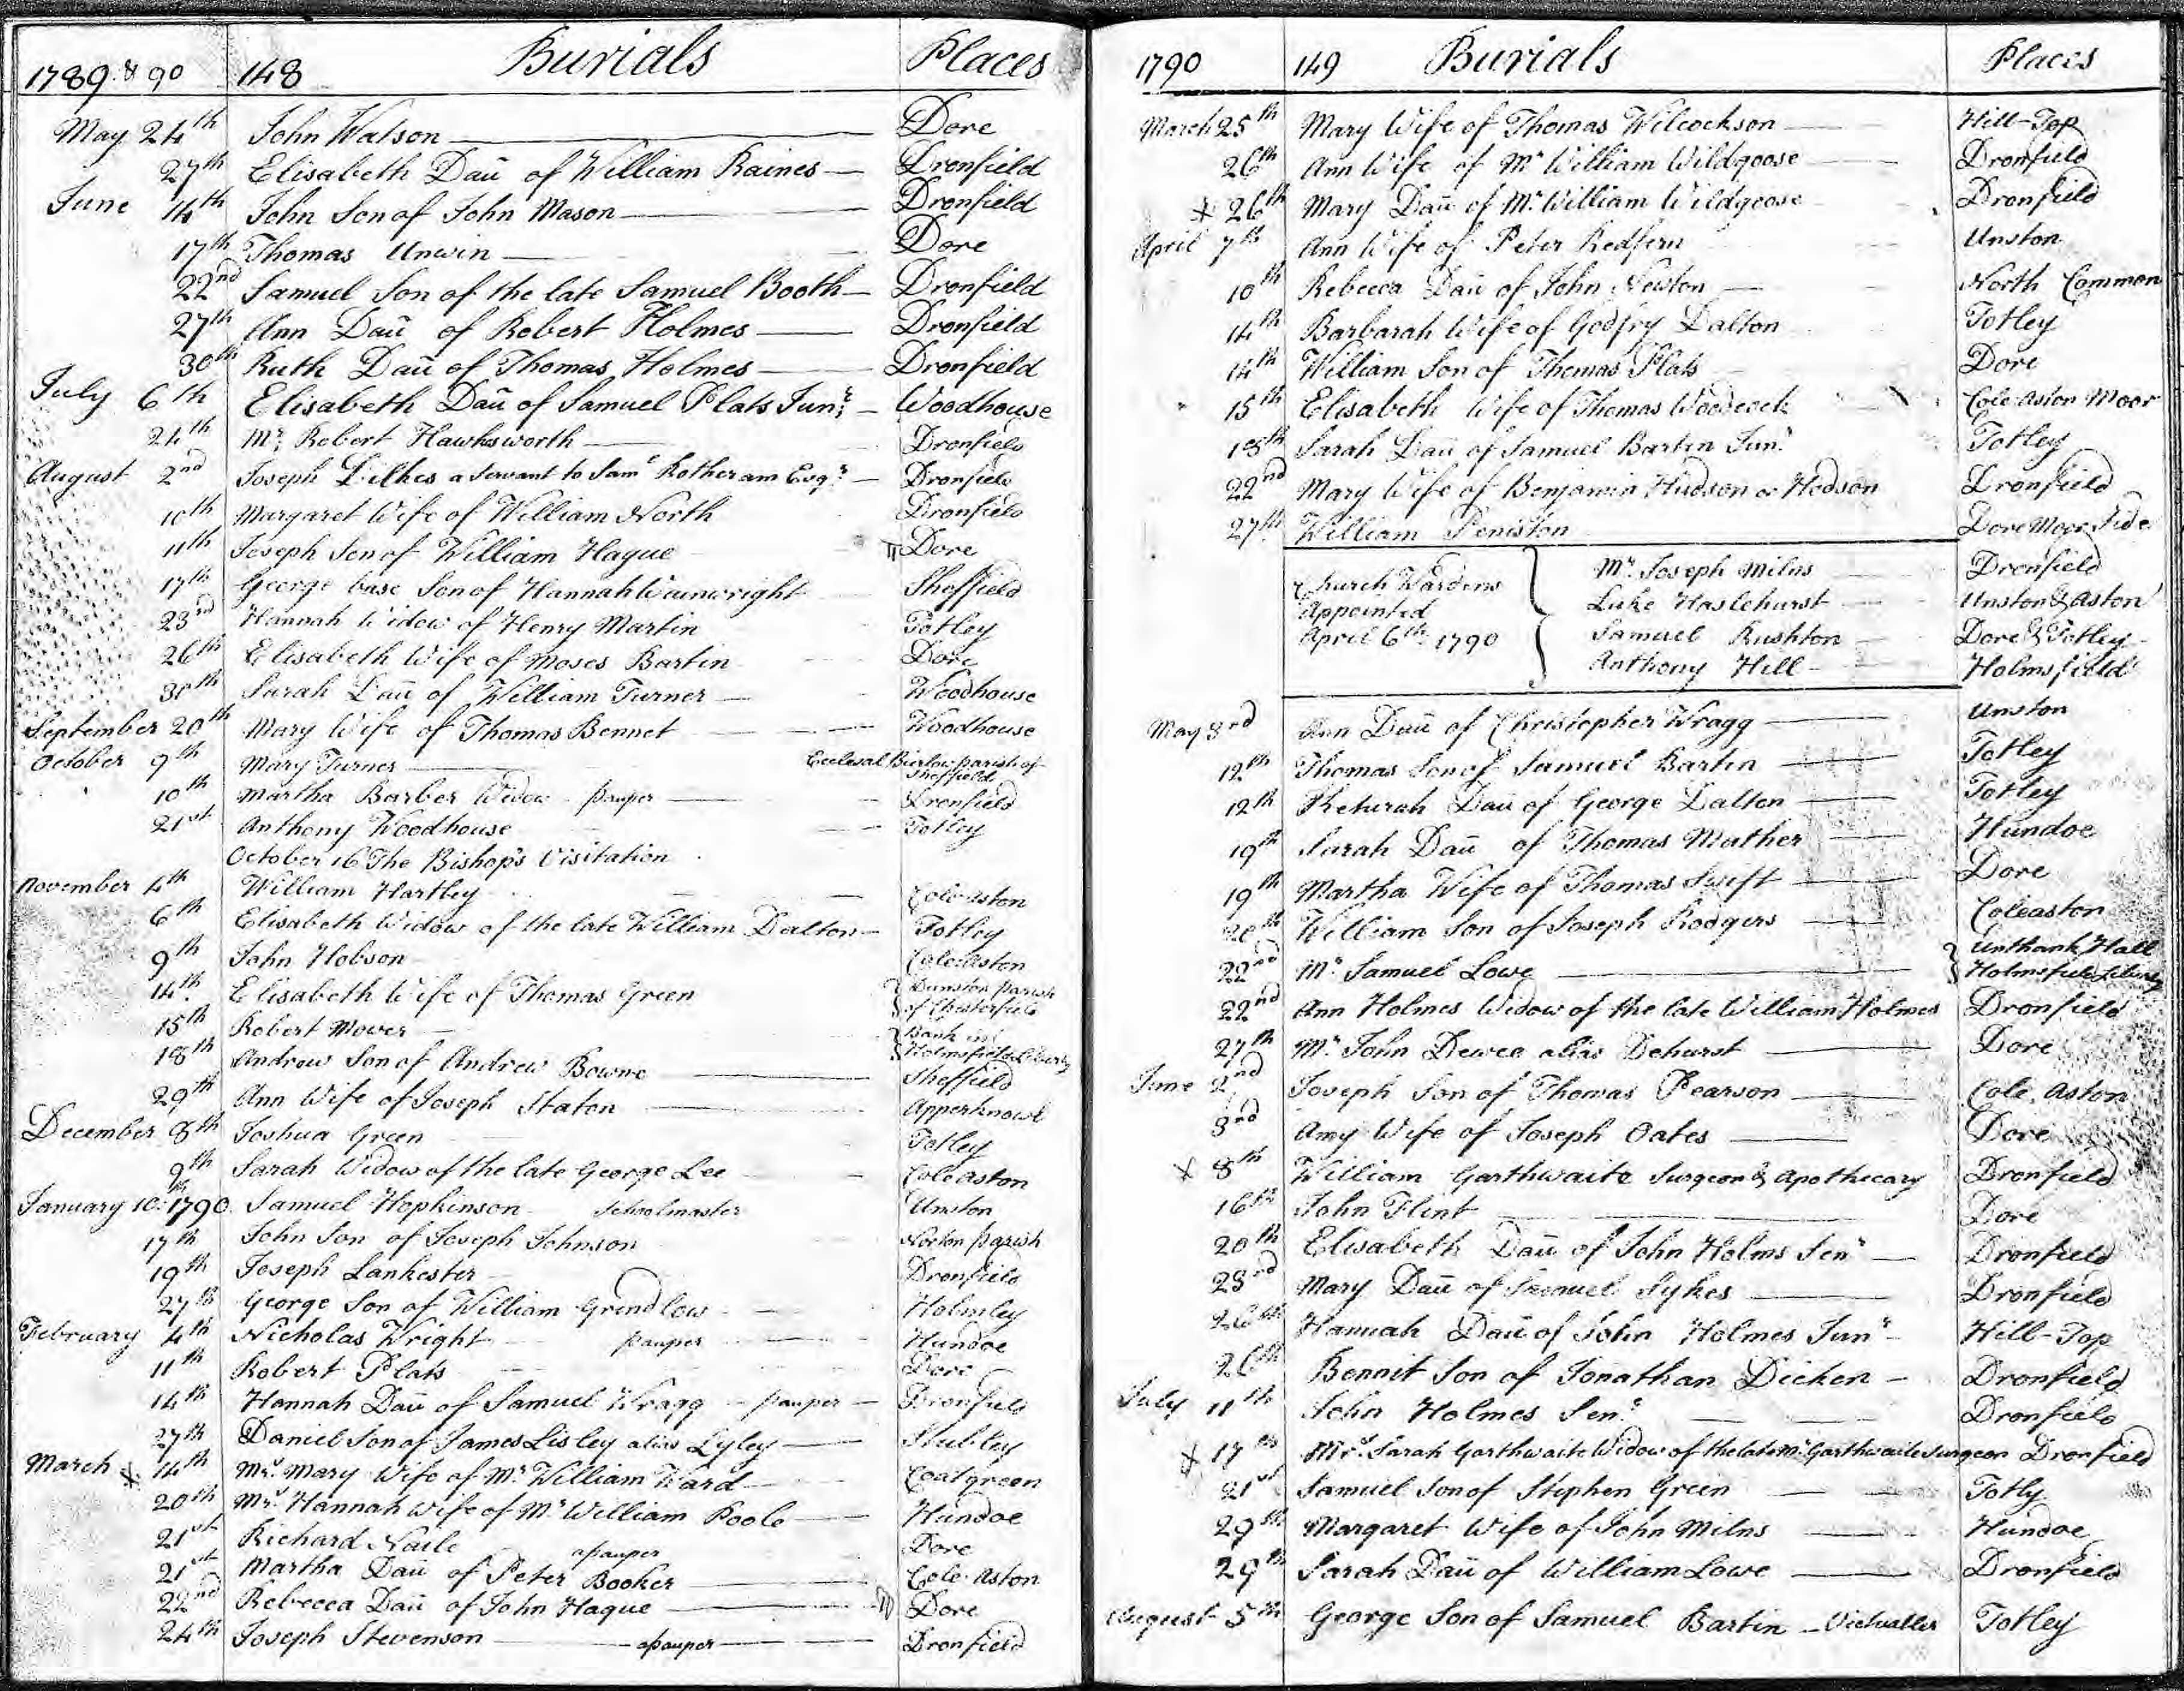 1789 & 90 148 Burials Places
May 24th John Watson Dore
27th Elisabeth Dau of William Raines Dronfield
June 14th John Son of John Mason Dronfield
17th Thomas Unwin Dore
22nd Samuel Son of the late Samuel Booth Dronfield
27th Ann Dau of Robert Holmes Dronfield
30th Ruth Dau of Thomas Holmes Dronfield
July 6th Elisabeth Dau of Samuel Plats Junr Woodhouse
24th Mr Robert Hawksworth Dronfield
August 2nd Joseph Dilkes a Servant to Saml Rotheram Esqr Dronfield
10th Margaret Wife of William North Dronfield
11th Joseph Son of William Hague Dore
17th George base Son of Hannah Wainwright Sheffield
23rd Hannah Widow of Henry Martin Totley
26th Elisabeth Wife of Moses Bartin Dore
30th Sarah Dau of William Turner Woodhouse
September 20th Mary Wife of Thomas Bennet Woodhouse
October 9th Mary Turner Ecclesal Bierlow parish of Sheffield
10th Martha Barber Widow pauper Dronfield
21st Anthony Woodhouse Totley
October 16 The Bishop's Visitation
November 4th William Hartley Coleaston
6th Elisabeth Widow of the late William Dalton Totley
9th John Hobson Coleaston
14th Elisabeth Wife of Thomas Green Dunston parish of Chesterfield
15th Robert Mower Bank in Holmsfield Liberty
18th Andrew Son of Andrew Bowne Sheffield
29th Ann Wife of Joseph Staton Apperknowl
December 8th Joshua Green Totley
9th Sarah Widow of the late George Lee Coleaston
January 10th 1790 Samuel Hopkinson Schoolmaster Unston
17th John Son of Joseph Johnson Norton parish
19th Joseph Lankester Dronfield
27th George Son of William Grindlow Holmley
February 4th Nicholas Wright pauper Hundoe
11th Robert Plats Dore
14th Hannah Dau of Samuel Wragg pauper Dronfield
27th Daniel Son of James Lisley alias Lyley Stubley
March 14th Mrs Mary Wife of Mr William Ward Coatgreen
20th Mrs Hannah Wife of Mr William Poole Hundoe
21st Richard Naile a pauper Dore
21st Martha Dau of Peter Booker Cole Aston
22nd Rebecca Dau of John Hague Dore
24th Joseph Stevenson a pauper Dronfield
1790 149 Burials Places
March 25th Mary Wife of Thomas Wilcockson Hill-Top
26th Ann Wife of Mr William Wildgoose Dronfield
26th Mary Dau of Mr William Wildgoose Dronfield
April 7th Ann Wife of Peter Redfern Unston
10th Rebecca Dau of John Newton North Common
14th Barbarah Wife of Godfry Dalton Totley
14th William Son of Thomas Plats Dore
15th Elisabeth Wife of Thomas Woodcock Cole Aston Moor
18th Sarah Dau of Samuel Bartin Junr Totley
22nd Mary Wife of Benjamin Hudson or Hodson Dronfield
27th William Peniston Dore Moor Side
Church Wardens Mr Joseph Milns Dronfield
Appointed Luke Haslehurst Unston & Aston
April 6th 1790 Samuel Rushton Dore & Totley
Anthony Hill Holmsfield
May 3rd Ann Dau of Christopher Wragg Unston
12th Thomas Son of Samuel Bartin Totley
12th Keturah Dau of George Dalton Totley
19th Sarah Dau of Thomas Mather Hundoe
19th Martha Wife of Thomas Swift Dore
20th William Son of Joseph Rodgers Coleaston
22nd Mr Samuel Lowe Unthank Hall Holmsfield Liberty
22nd Ann Holmes Widow of the late William Holmes Dronfield
27th Mr John Dewee alias Dehurst Dore
June 2nd Joseph Son of Thomas Pearson Cole Aston
3rd Amy Wife of Joseph Oates Dore
8th William Garthwaite Surgeon & Apothecary Dronfield
16th John Flint Dore
20th Elisabeth Dau of John Holms Senr Dronfield
23rd Mary Dau of Samuel Sykes Dronfield
26th Hannah Dau of John Holmes Junr Hill-Top
26th Bennit Son of Jonathan Dicken Dronfield
July 11th John Holmes Senr Dronfield
17th Mrs Sarah Garthwaite Widow of the late Mr Garthwaite Surgeon Dronfield
21st Samuel Son of Stephen Green Totly
29th Margaret Wife of John Milns Hundoe
29th Sarah Dau of William Lowe Dronfield
August 5th George Son of Samuel Bartin Victualler Totley